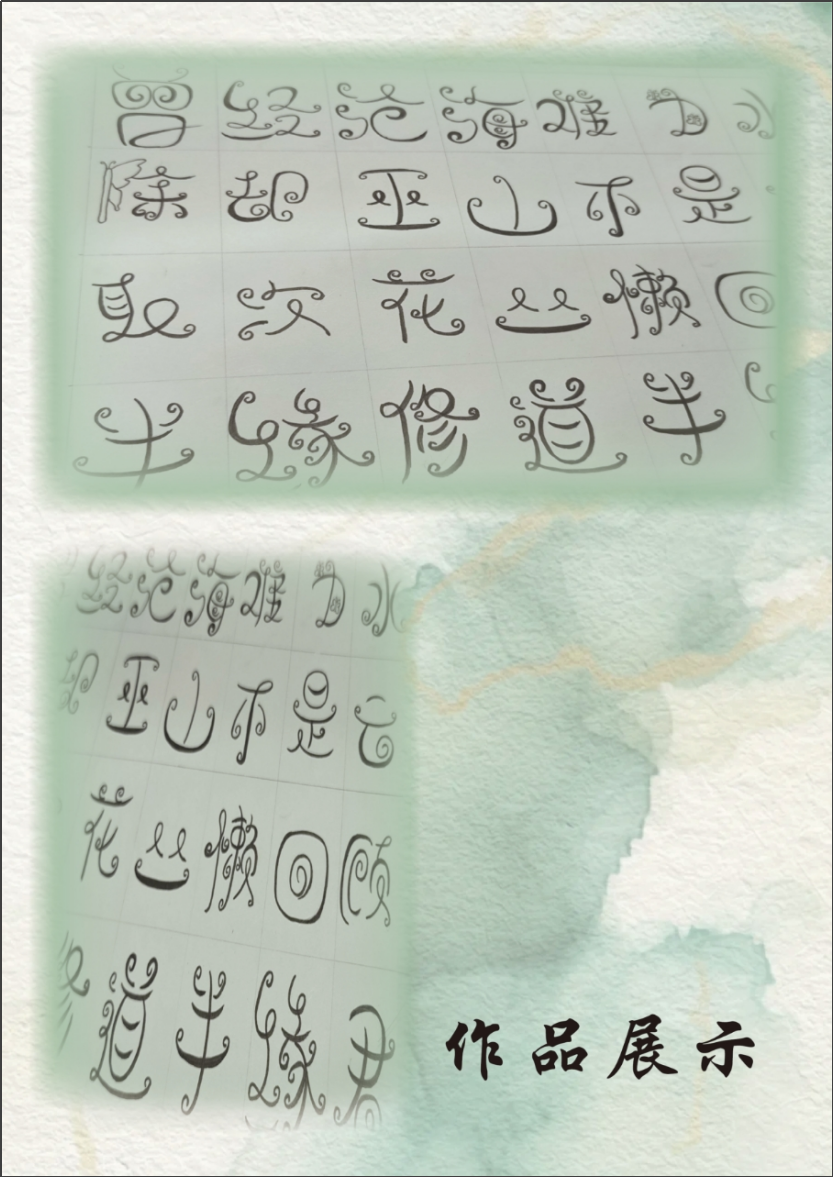 曾经沧海难为水
除却巫山不是
取次花丛懒回
半缘修道半
经沧海难为水
却巫山不是云
花丛懒回顾
修道半缘君
作品展示